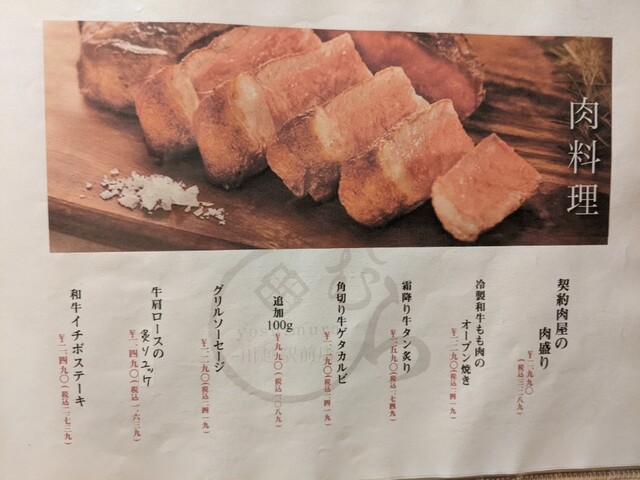 肉料理
契約肉屋の
肉盛り
¥二、九九〇(税込三、二八九)
冷製和牛もも肉の
オーブン焼き
¥一、二九〇(税込一、四一九)
霜降り牛タン炙り
¥一、五九〇(税込一、七四九)
角切り牛ゲタカルビ
¥一、二九〇(税込一、四一九)
追加100g
¥九九〇(税込一、〇八九)
グリルソーセージ
¥一、二九〇(税込一、四一九)
牛肩ロースの
炙りユッケ
¥一、四九〇(税込一、六三九)
和牛イチボステーキ
¥二、四九〇(税込二、七三九)